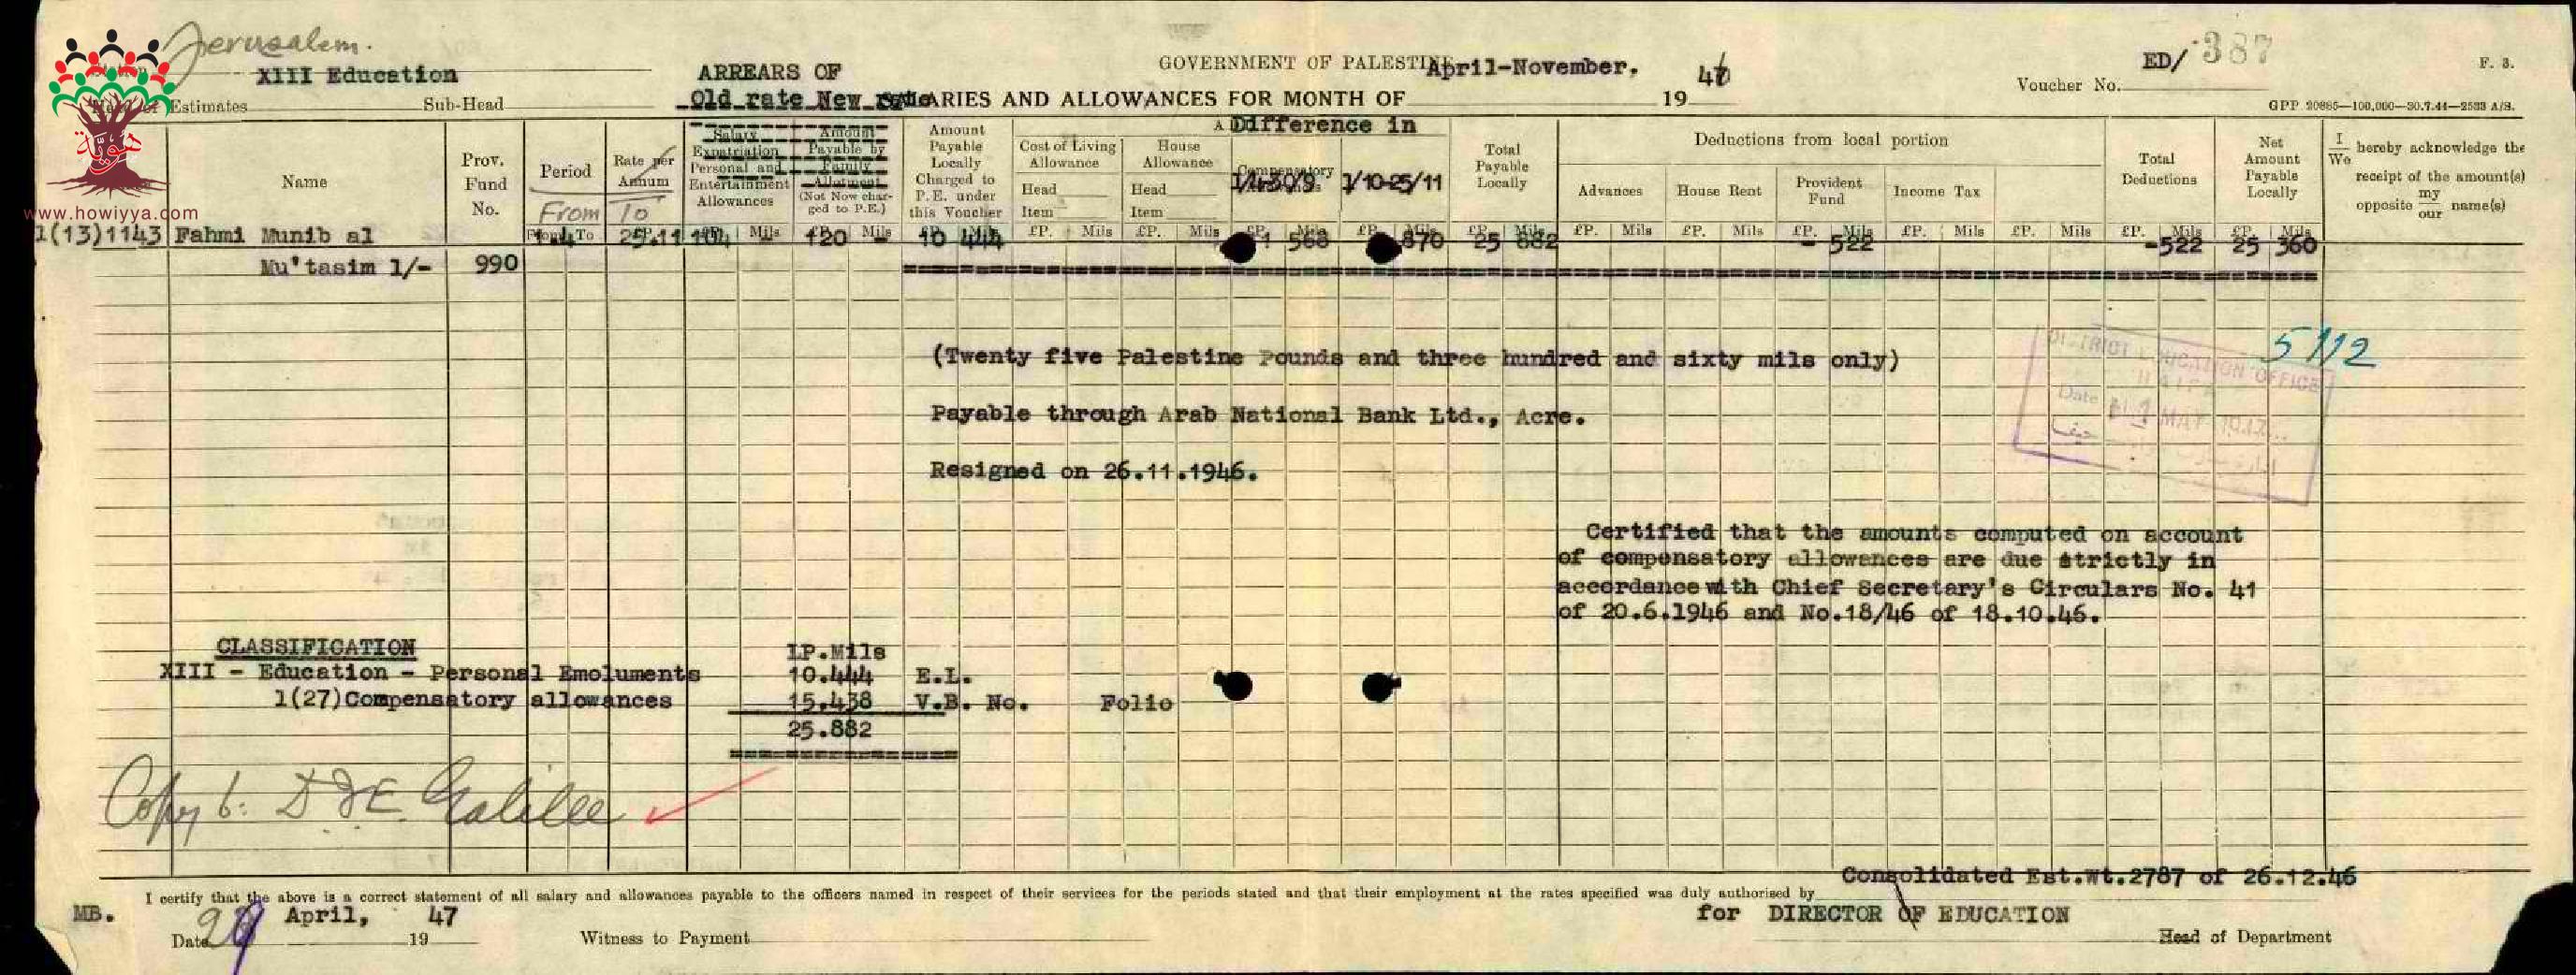 Jerusalem.
GOVERNMENT OF PALESTINE
April-November.
46
ED/ 387
F. 3.
XIII Education
ARREARS OF
Voucher No.
Estimates Sub-Head
Old rate New rate
SALARIES AND ALLOWANCES FOR MONTH OF 19
GPP 20885—100,000—30.7.44—2533 A/S.
هوية
www.howiyya.com
Name
Prov. Fund No.
Period
Rate per Annum
From To
Salary Expatriation Personal and Entertainment Allowances
Amount Payable by Family Allotment (Not Now charged to P.E.)
Amount Payable Locally Charged to P.E. under this Voucher
Cost of Living Allowance
Head
Item
House Allowance
Head
Item
Difference in
Compensatory
1/4-30/9 1/10-25/11
Total Payable Locally
Deductions from local portion
Advances House Rent Provident Fund Income Tax
Total Deductions
Net Amount Payable Locally
I/We hereby acknowledge the
receipt of the amount(s)
opposite my/our name(s)
From To £P. Mils £P. Mils £P. Mils £P. Mils £P. Mils £P. Mils £P. Mils £P. Mils £P. Mils £P. Mils £P. Mils £P. Mils £P. Mils £P. Mils
1(13)1143 Fahmi Munib al 25.11 104 120 10 444 568 870 25 882 - 522 -522 25 360
Mu'tasim 1/- 990
5/12
(Twenty five Palestine Pounds and three hundred and sixty mils only)
DISTRICT EDUCATION OFFICE
HAIFA
Date MAY 1947
حيفا
Payable through Arab National Bank Ltd., Acre.
Resigned on 26.11.1946.
Certified that the amounts computed on account
of compensatory allowances are due strictly in
accordance with Chief Secretary's Circulars No. 41
of 20.6.1946 and No.18/46 of 18.10.46.
CLASSIFICATION LP.Mils
XIII - Education - Personal Emoluments 10.444 E.L.
1(27)Compensatory allowances 15.438 V.B. No. Folio
25.882
Copy to: D I E. Galilee
Consolidated Est.Wt.2787 of 26.12.46
I certify that the above is a correct statement of all salary and allowances payable to the officers named in respect of their services for the periods stated and that their employment at the rates specified was duly authorised by
MB. April, 47
for DIRECTOR OF EDUCATION
Date 19 Witness to Payment
Head of Department